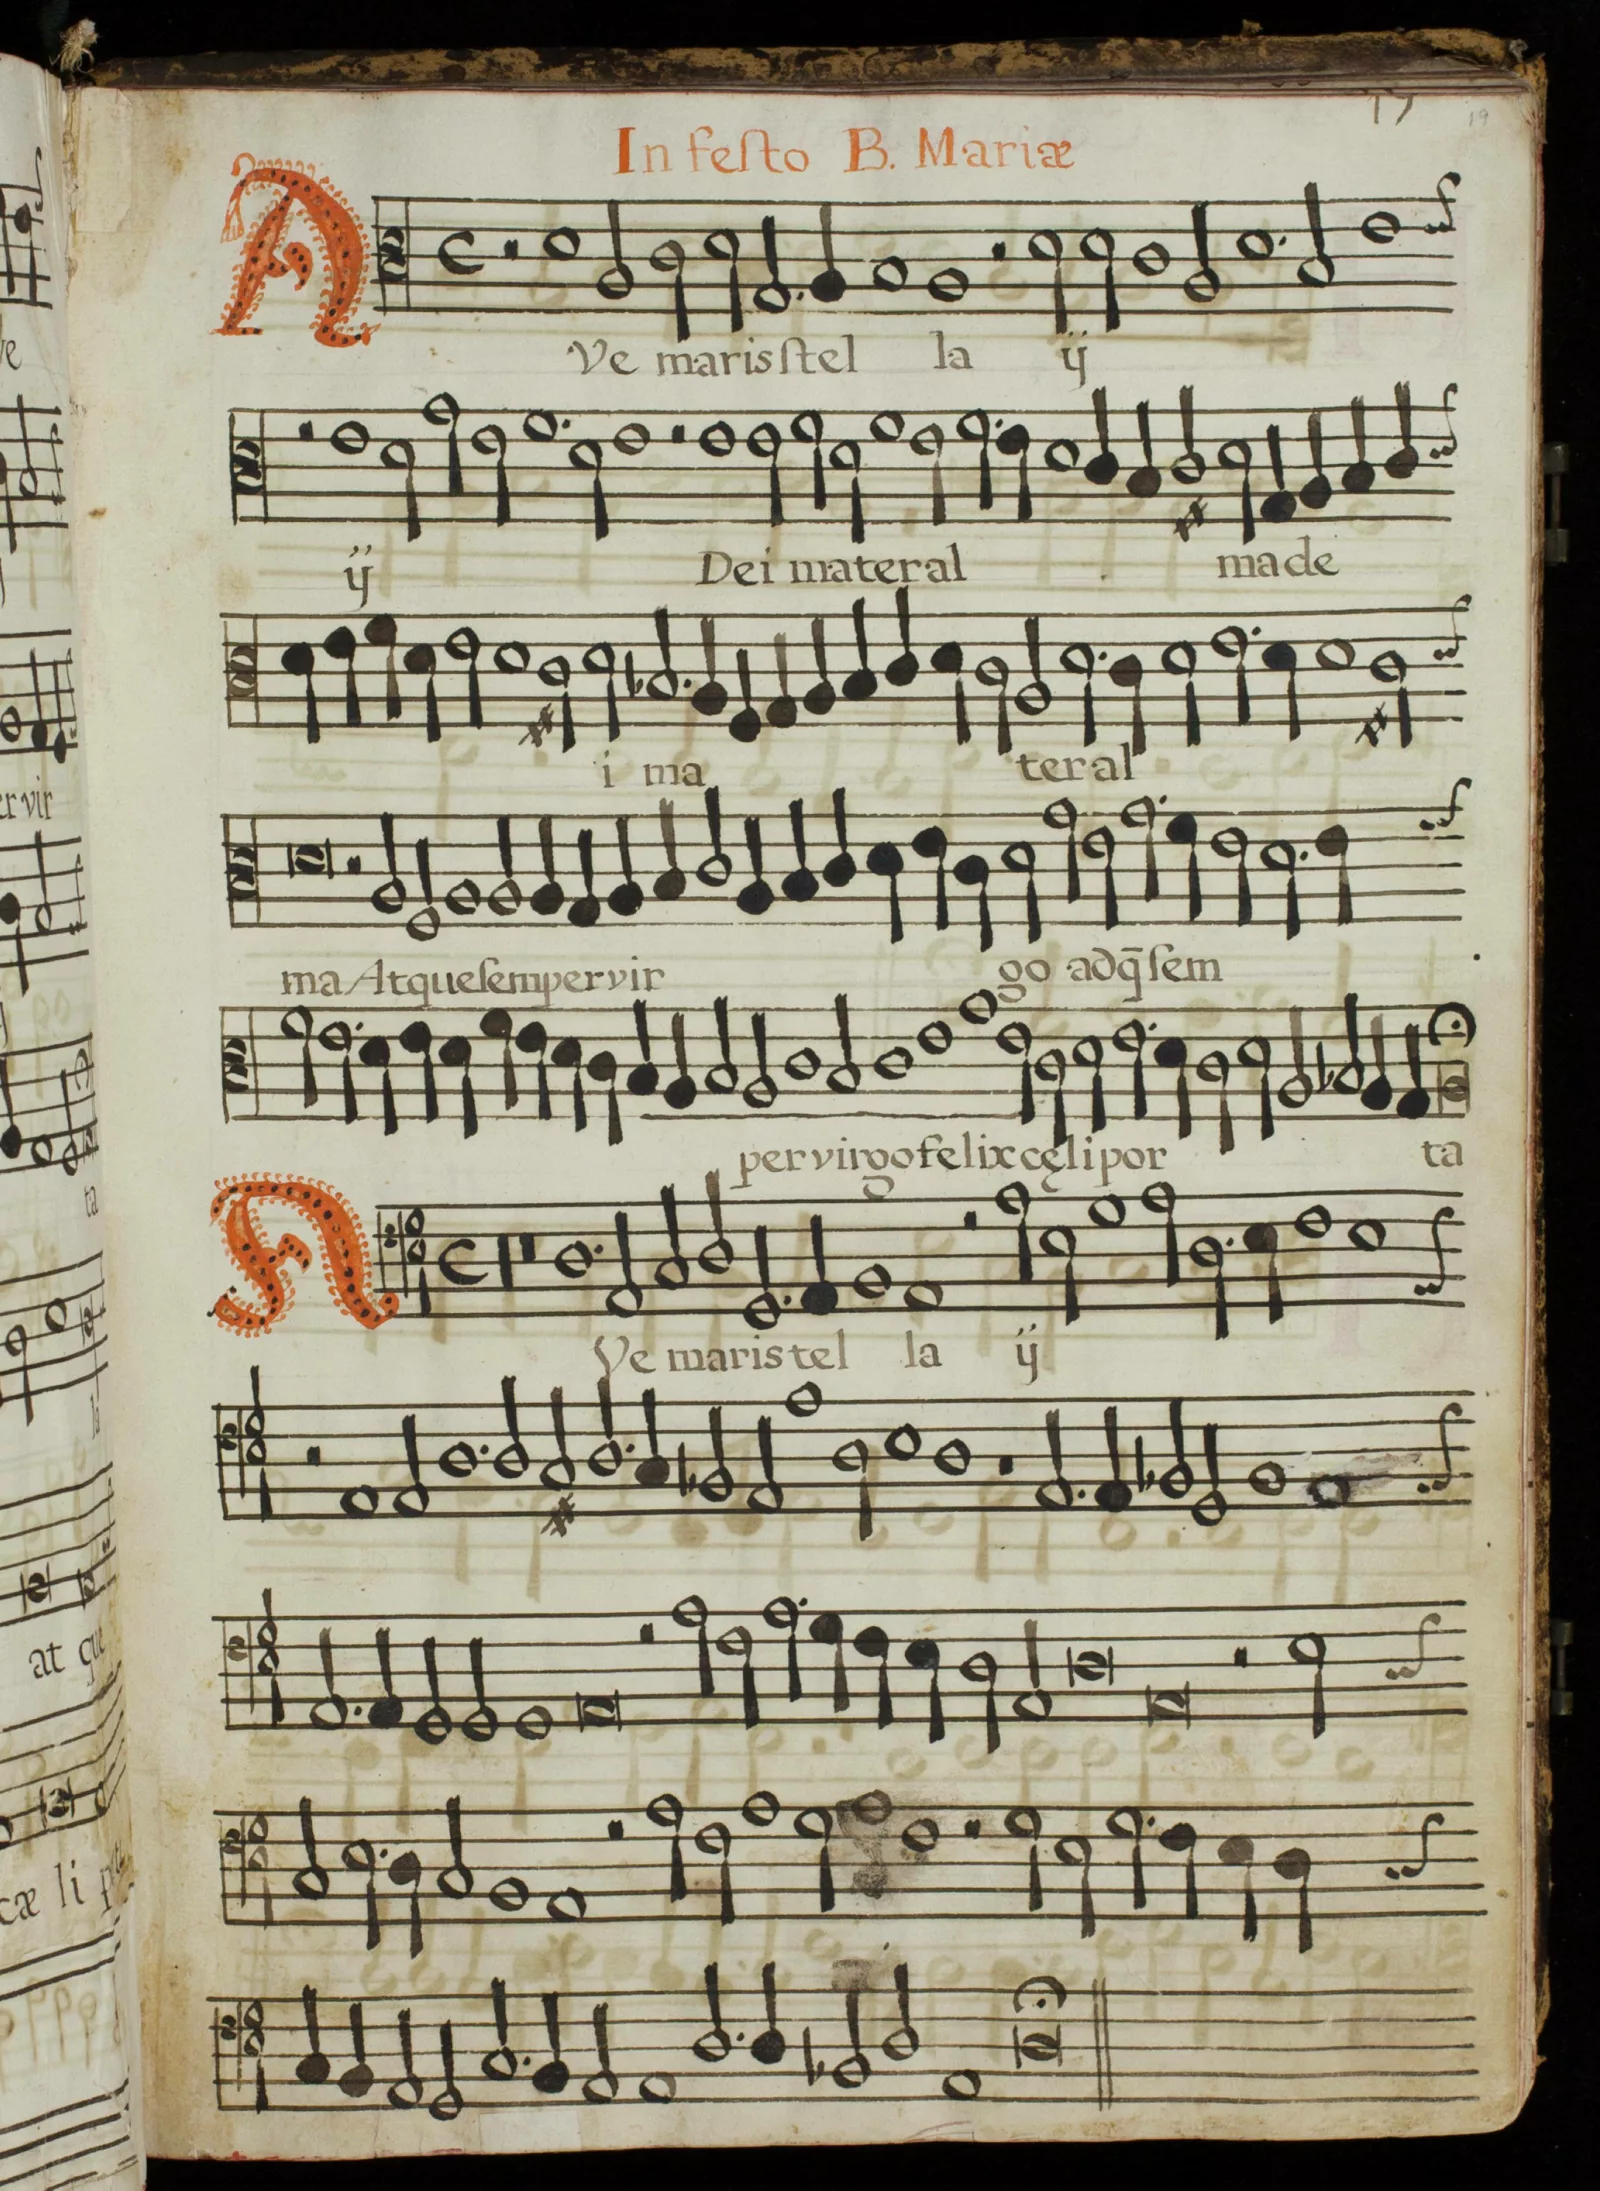 19
In festo B. Mariæ
AVe maris stel la ij
ij Dei mater al ma de
i ma ter al
ma Atque semper vir go adq̄ sem
per virgo felix cęli por ta
AVe maris tel la ij
ve
er vir
ta
la
at que
cæ li